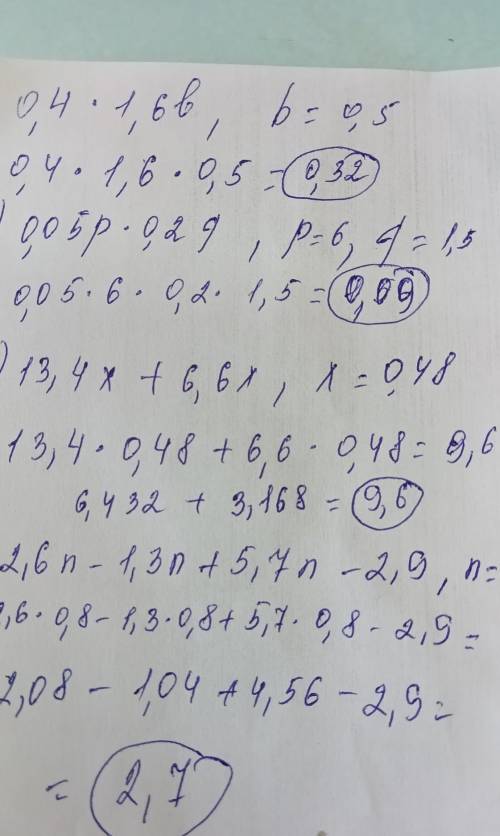 0,4 · 1,6b, b = 0,5
0,4 · 1,6 · 0,5 = 0,32
) 0,05p · 0,2q, p=6, q=1,5
0,05 · 6 · 0,2 · 1,5 = 0,09
) 13,4x + 6,6x, x = 0,48
13,4 · 0,48 + 6,6 · 0,48 = 9,6
6,432 + 3,168 = 9,6
2,6n - 1,3n + 5,7n - 2,9, n=
2,6 · 0,8 - 1,3 · 0,8 + 5,7 · 0,8 - 2,9 =
2,08 - 1,04 + 4,56 - 2,9 =
= 2,7